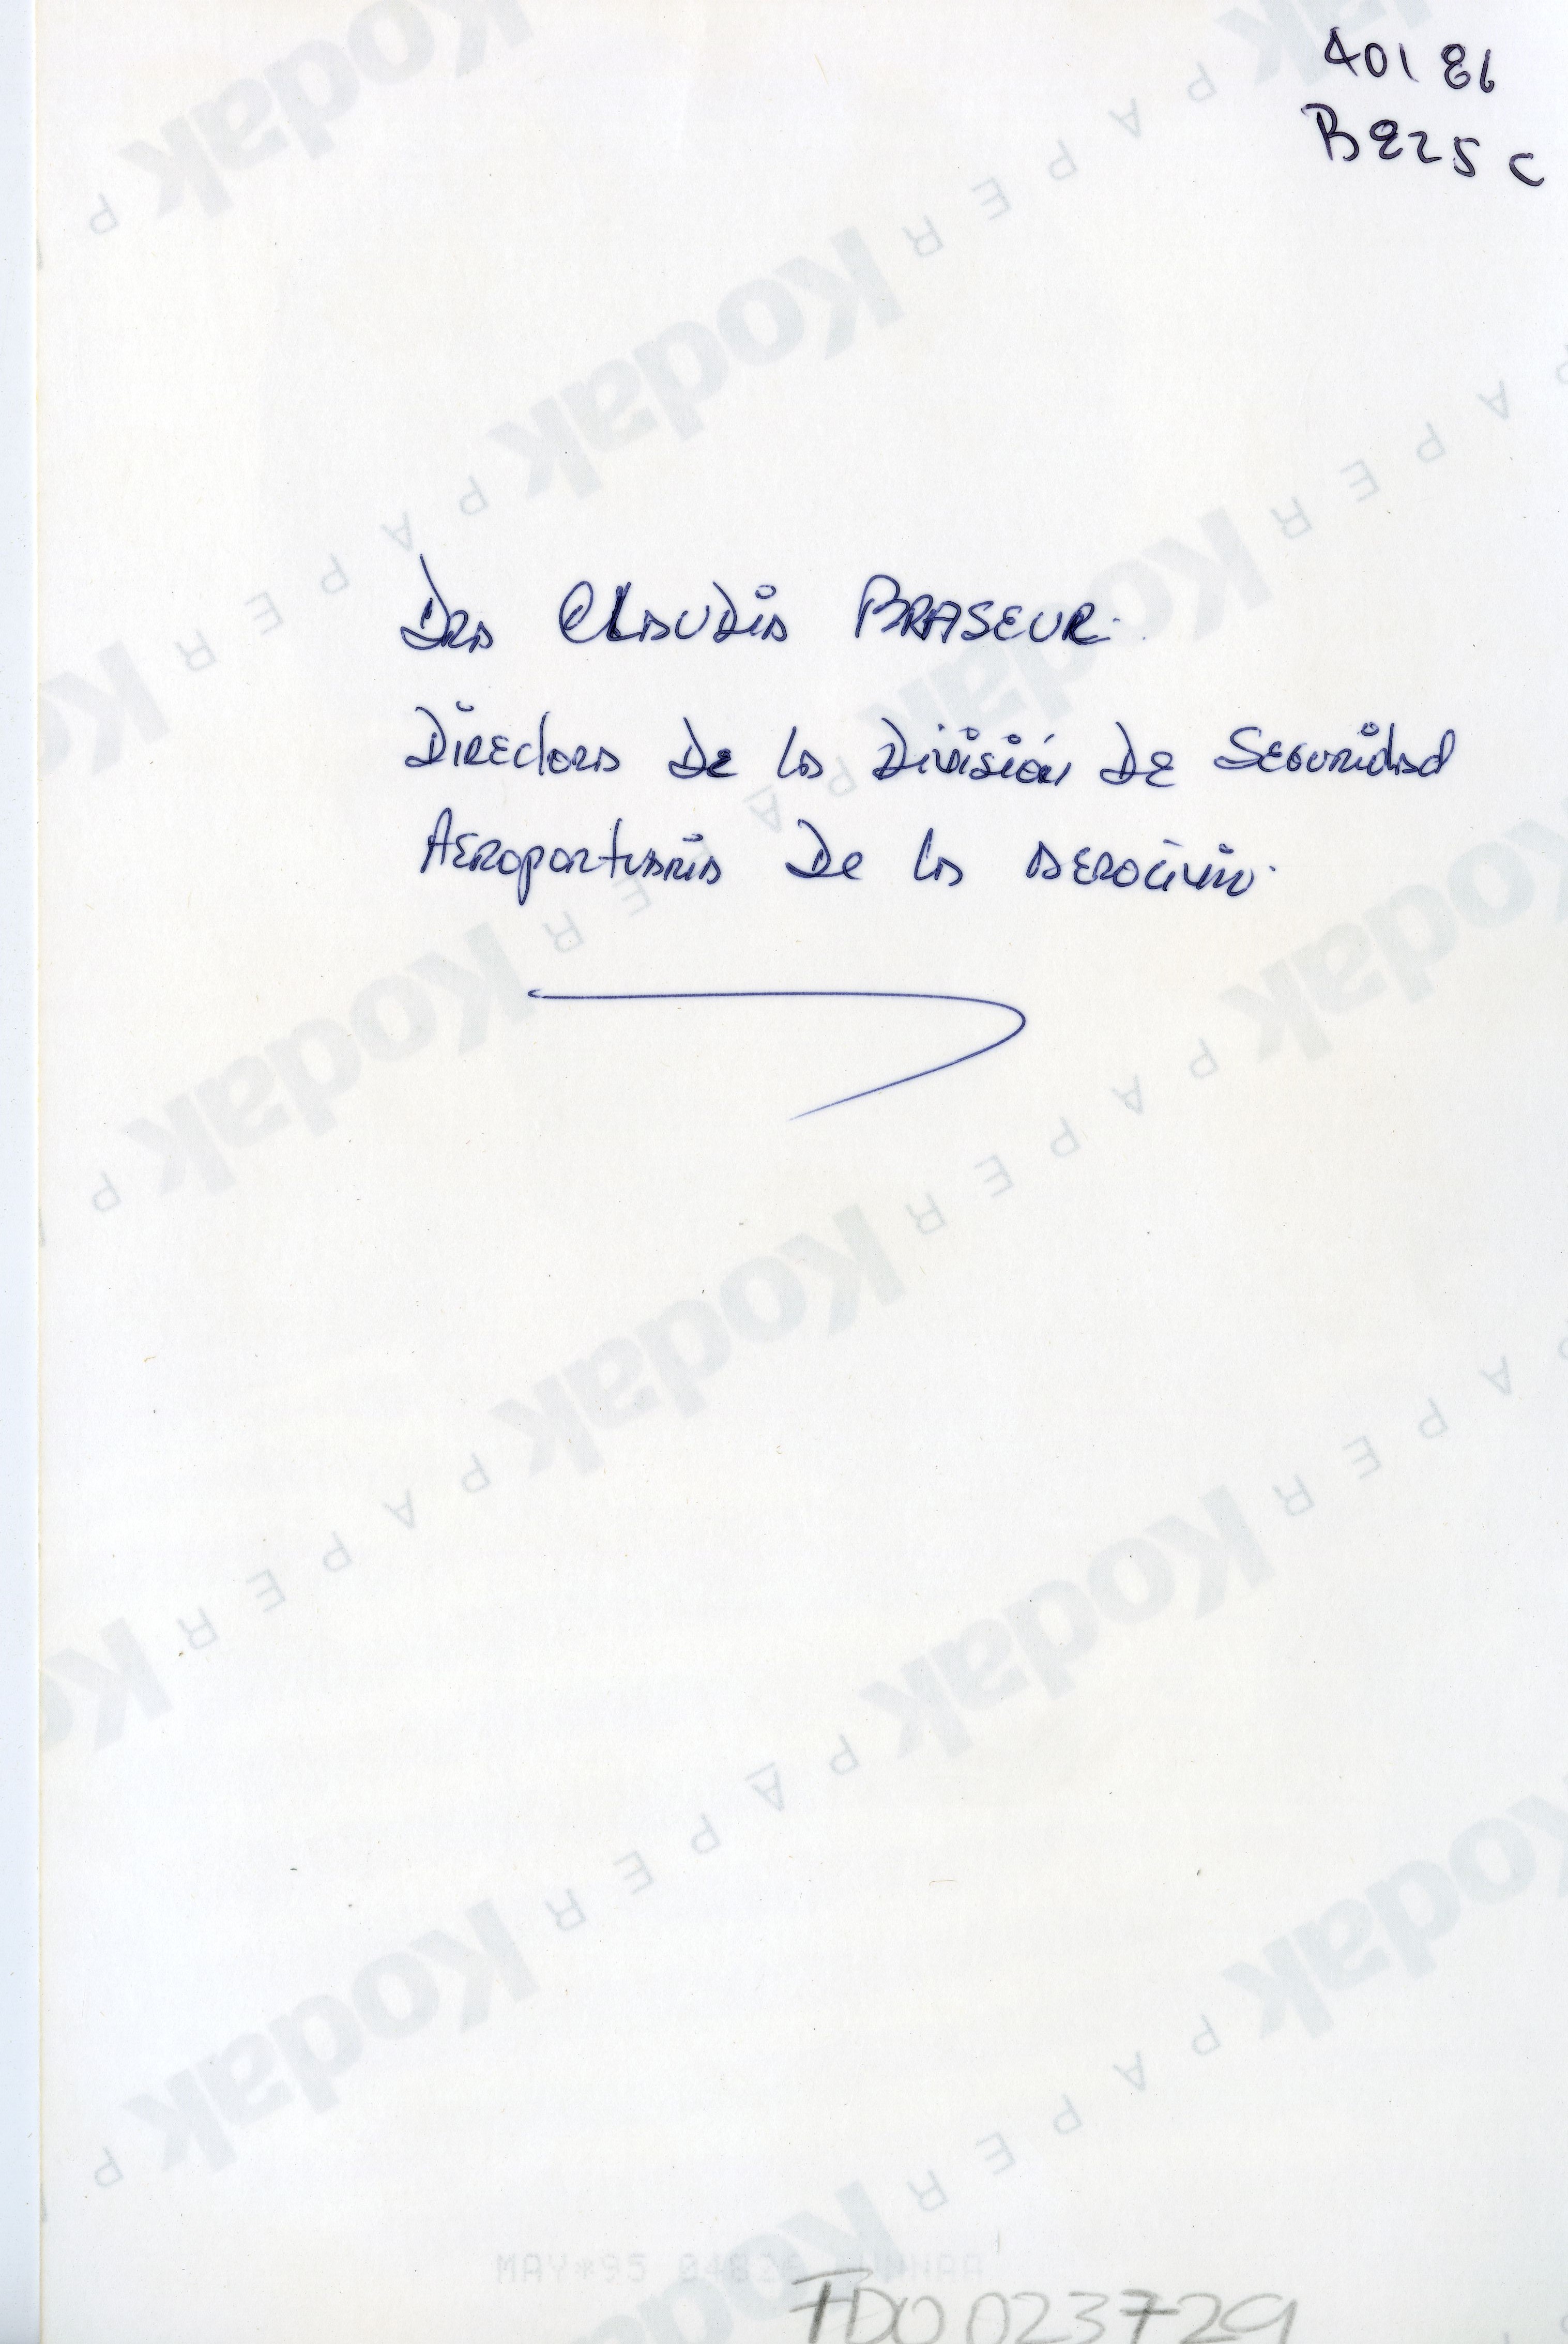 401 86
B825 C
Dra Claudia BRASEUR.
Directora De la División DE Seguridad
Aeroportuaria De la aerocivil.
MAY*95
TDO023729
Kodak PAPER